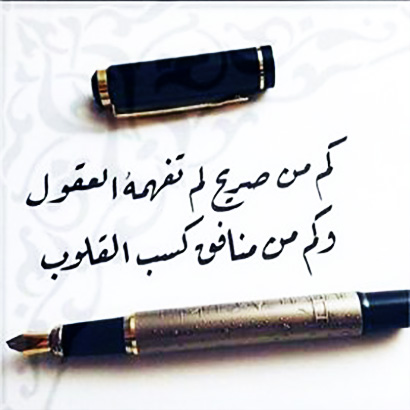 كم من صريح لم تفهمهُ العقول
وكم من منافق كسب القلوب